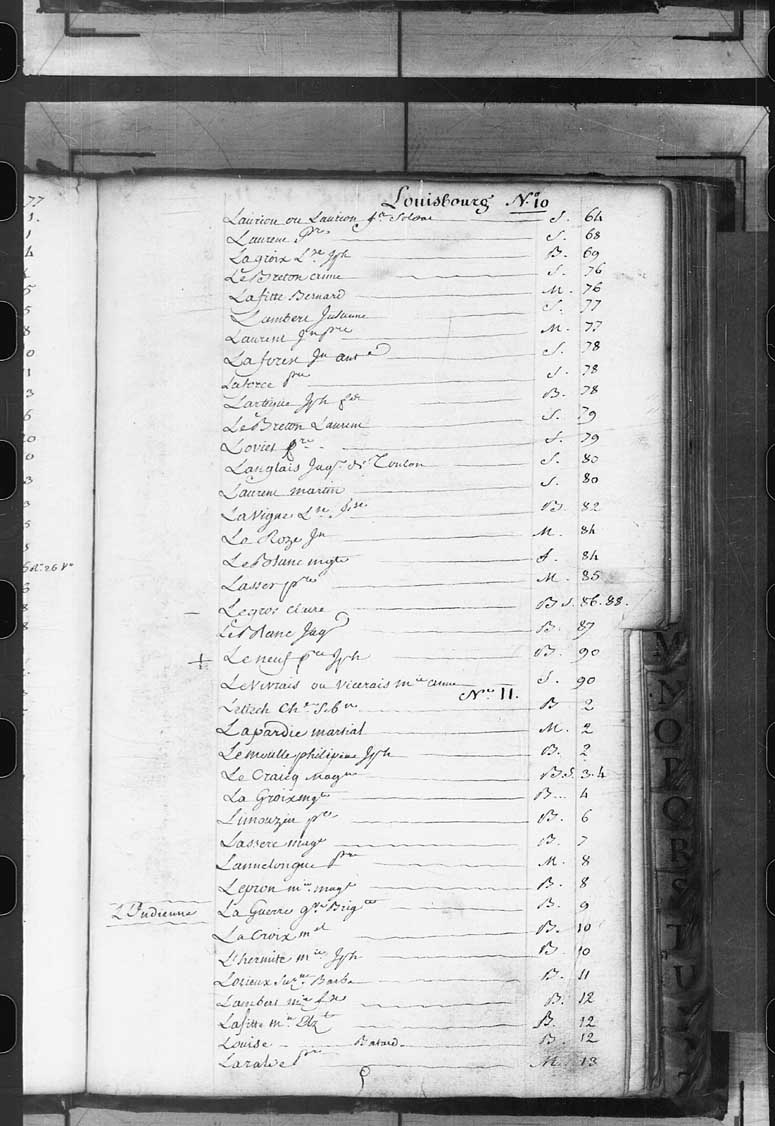 Louisbourg N.º 10
Laurion ou Laurion S. 64
Laurent pre S. 68
Lagroix Jph B. 69
Le Breton anne S. 76
Lafitte Bernard M. 76
Lambert Susanne S. 77
Laurent Jn pre M. 77
Laforest Jn ant.e S. 78
Laforce pre S. 78
Lartigue Jph B. 78
Le Breton Laurent S. 79
Loviet pre S. 79
Langlais Jaq.s de Toulon S. 80
Laurent martin S. 80
La Vigne B. 82
La Roze Jn M. 84
Le Blanc mgte S. 84
Lasser pre M. 85
Legros claire B S. 86. 88.
Le Blanc Jaq B. 87
+ Le neuf pre Jph B. 90
Le Vivrais ou Vicerais m.ie anne S. 90
N.º 11.
Lettech Ch.s B 2
Lapardie martial M. 2
Lemoulle philipine Jph B. 2
Le Craicq Magne B S. 3. 4
La Groix mgte B. 4
Limouzin pre B. 6
Lassere magte B. 7
Lannelongue pre M. 8
Lepron m.ie magte B. 8
L'Indienne La Guerre Brig.te B. 9
La Croix m.el B. 10
L'hermite m.ie Jph B 10
Lorieux Barbe B. 11
Lambert m.ie B. 12
Lafitte m.ie Elz.t B. 12
Louise Batard B. 12
pre M. 13
77
1.
1
4
5
5
8
0
1
3
6
0
3
3
5
5
26 V.º
6
8
8
M
N
O
P
Q
R
S
T
U